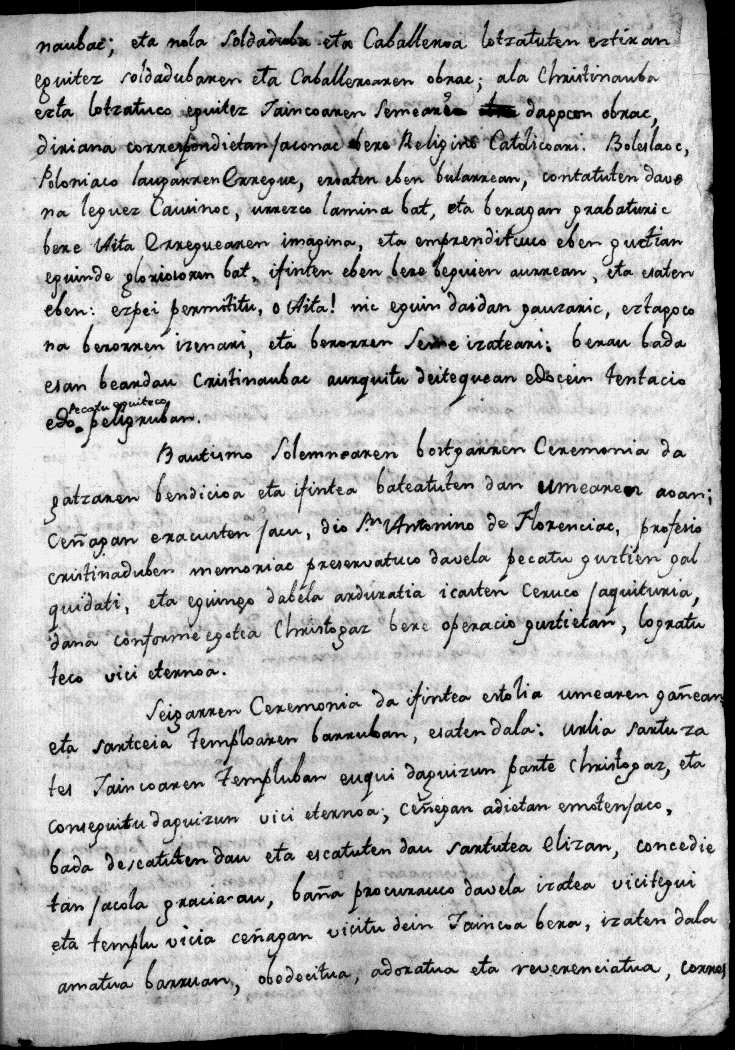 naubac; eta nola Soldaduba eta Caballeroa lotzatuten eztiran
eguitez soldadubaren eta Caballeroaren obrac; ala Christinauba
ezta lotzatuco eguitez Jaincoaren Semeari dagocon obrac,
diriana correspondietan jaconac bere Religino Catolicoari. Boleslaoc,
Poloniaco laugarren Erregue, eroaten eben bularrean, contatuten dave
na leguez Cauinoc, urrezco lamina bat, eta beragan grabaturic
bere Aita Erreguearen imagina, eta emprenditcuco eben guztian
eguinde gloriosoren bat, ifinten eben bere beguien aurrean, eta esaten
eben: ezpei permititu, o Aita! nic eguin daidan gauzaric, eztagoco
na berorren izenari, eta berorren Seme izateari: berau bada
esan beardau Cristinaubac aurquitu deitequean edocein tentacio
edo pecatu eguiteco peligruban.
Bautismo Solemnearen bostgarren Ceremonia da
gatzaren bendicioa eta ifintea bateatuten dan umearen aoan;
Ceñagan eracusten jacu, dio Sn Antonino de Florenciac, profesio
cristinaduben memoriac preservatuco davela pecatu guztien gal
quidati, eta eguingo dabela arduratia icasten Ceruco jaquituria,
dana conforme egotea Christogaz bere operacio guztietan, logratu
teco vici eternoa.
Seigarren Ceremonia da ifintea estolia umearen gañean
eta sartceia Temploaren barruban, esaten dala: urlia sartu za
tes Jaincoaren Templuban euqui daguizun parte Christogaz, eta
conseguitu daguizun vici eternoa; Ceñegan adietan emoten jaco,
bada descatuten dau eta escatuten dau sartutea Elizan, concedie
tan jacola gracia au, baña procurauco davela izatea vicitegui
eta templu vicia ceñagan vicitu dein Jaincoa bera, izaten dala
amatua barruan, obedecitua, adoratua eta reverenciatua, corres